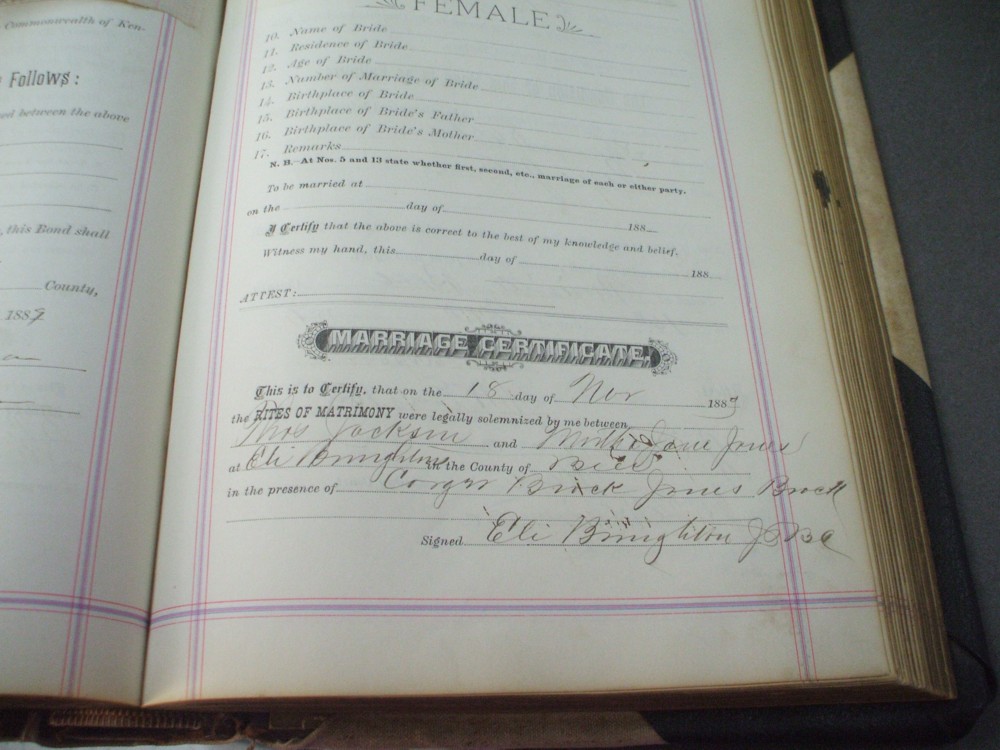 Commonwealth of Ken-
Follows:
ed between the above
, this Bond shall
County,
1887
FEMALE
10. Name of Bride
11. Residence of Bride
12. Age of Bride
13. Number of Marriage of Bride
14. Birthplace of Bride
15. Birthplace of Bride's Father
16. Birthplace of Bride's Mother
17. Remarks
N. B.—At Nos. 5 and 13 state whether first, second, etc., marriage of each or either party.
To be married at
on the day of 188
I Certify that the above is correct to the best of my knowledge and belief.
Witness my hand, this day of 188
ATTEST:
MARRIAGE CERTIFICATE.
This is to Certify, that on the 18 day of Nov 1887
the RITES OF MATRIMONY were legally solemnized by me between
Thos Jackson and Jane Jones
at Eli Broughtons in the County of Bell
in the presence of Brock James Brock
Signed Eli Broughton